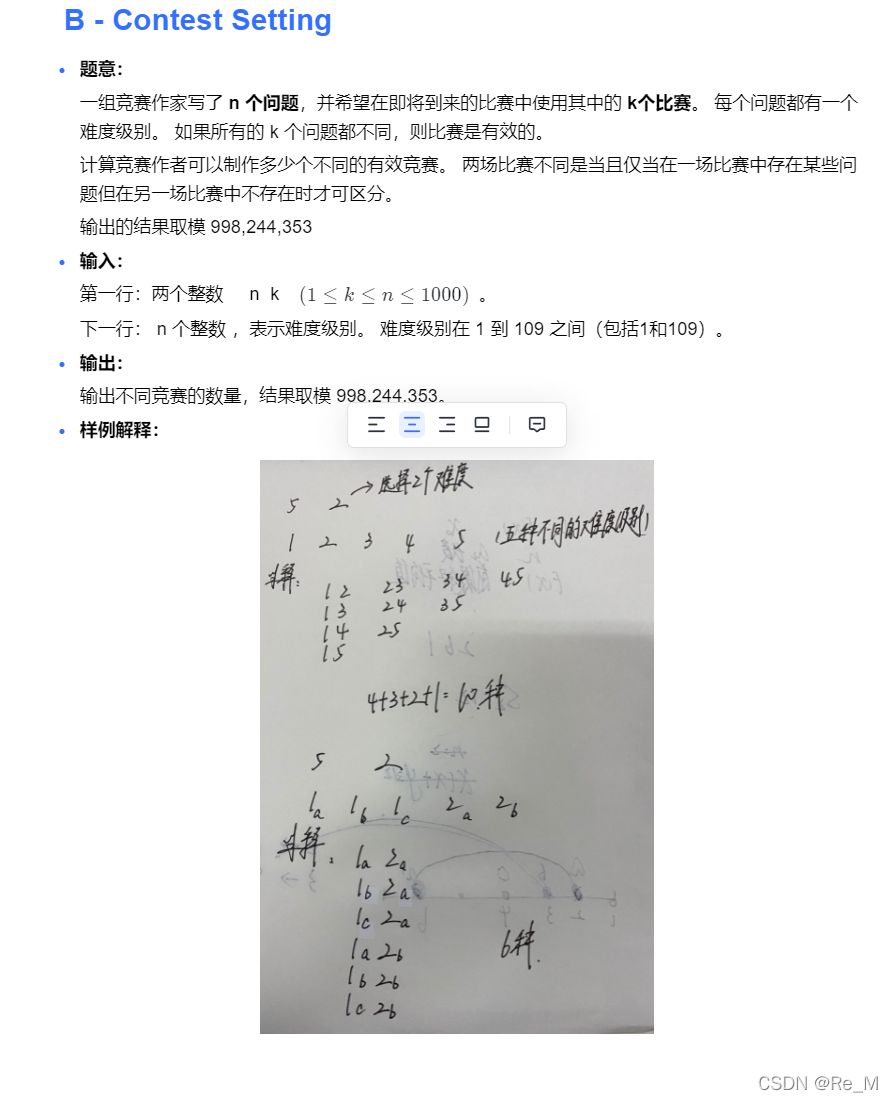 B - Contest Setting
题意：
一组竞赛作家写了 n 个问题，并希望在即将到来的比赛中使用其中的 k个比赛。 每个问题都有一个
难度级别。 如果所有的 k 个问题都不同，则比赛是有效的。
计算竞赛作者可以制作多少个不同的有效竞赛。 两场比赛不同是当且仅当在一场比赛中存在某些问
题但在另一场比赛中不存在时才可区分。
输出的结果取模 998,244,353
输入：
第一行：两个整数 n k (1 ≤ k ≤ n ≤ 1000) 。
下一行： n 个整数 ，表示难度级别。 难度级别在 1 到 109 之间（包括1和109）。
输出：
输出不同竞赛的数量，结果取模 998,244,353。
样例解释：
5 2 → 选择2个难度
1 2 3 4 5 (五种不同的难度级别)
解释：
12 23 34 45
13 24 35
14 25
15
4+3+2+1=10种
5 2
1a 1b 1c 2a 2b
解释：
1a 2a
1b 2a
1c 2a
1a 2b 6种.
1b 2b
1c 2b
CSDN @Re_M